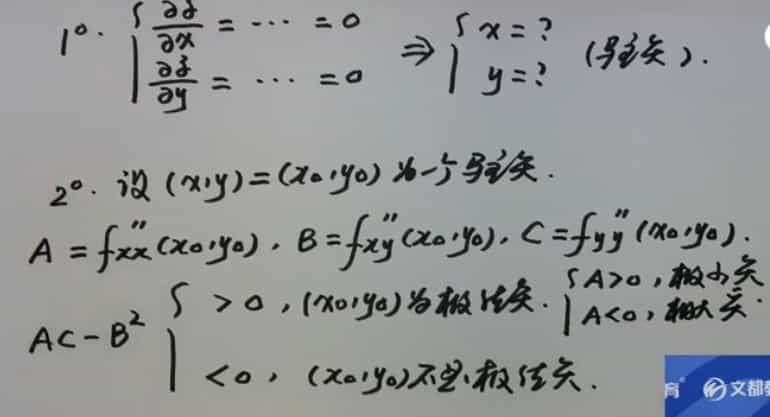 1°. { ∂z/∂x = ... = 0 ⇒ { x = ?
∂z/∂y = ... = 0 y = ? (驻点).
2°. 设 (x,y) = (x₀,y₀) 为一个驻点.
A = f''xx(x₀,y₀), B = f''xy(x₀,y₀), C = f''yy(x₀,y₀).
AC - B² { > 0, (x₀,y₀)为极值点. { A>0, 极小点
A<0, 极大点.
< 0, (x₀,y₀)不是极值点.
育 文都